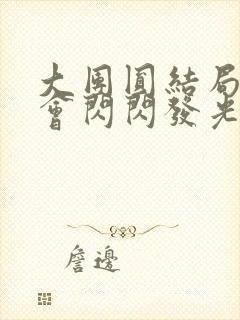 大團圓結局
會閃閃發光
詹邊